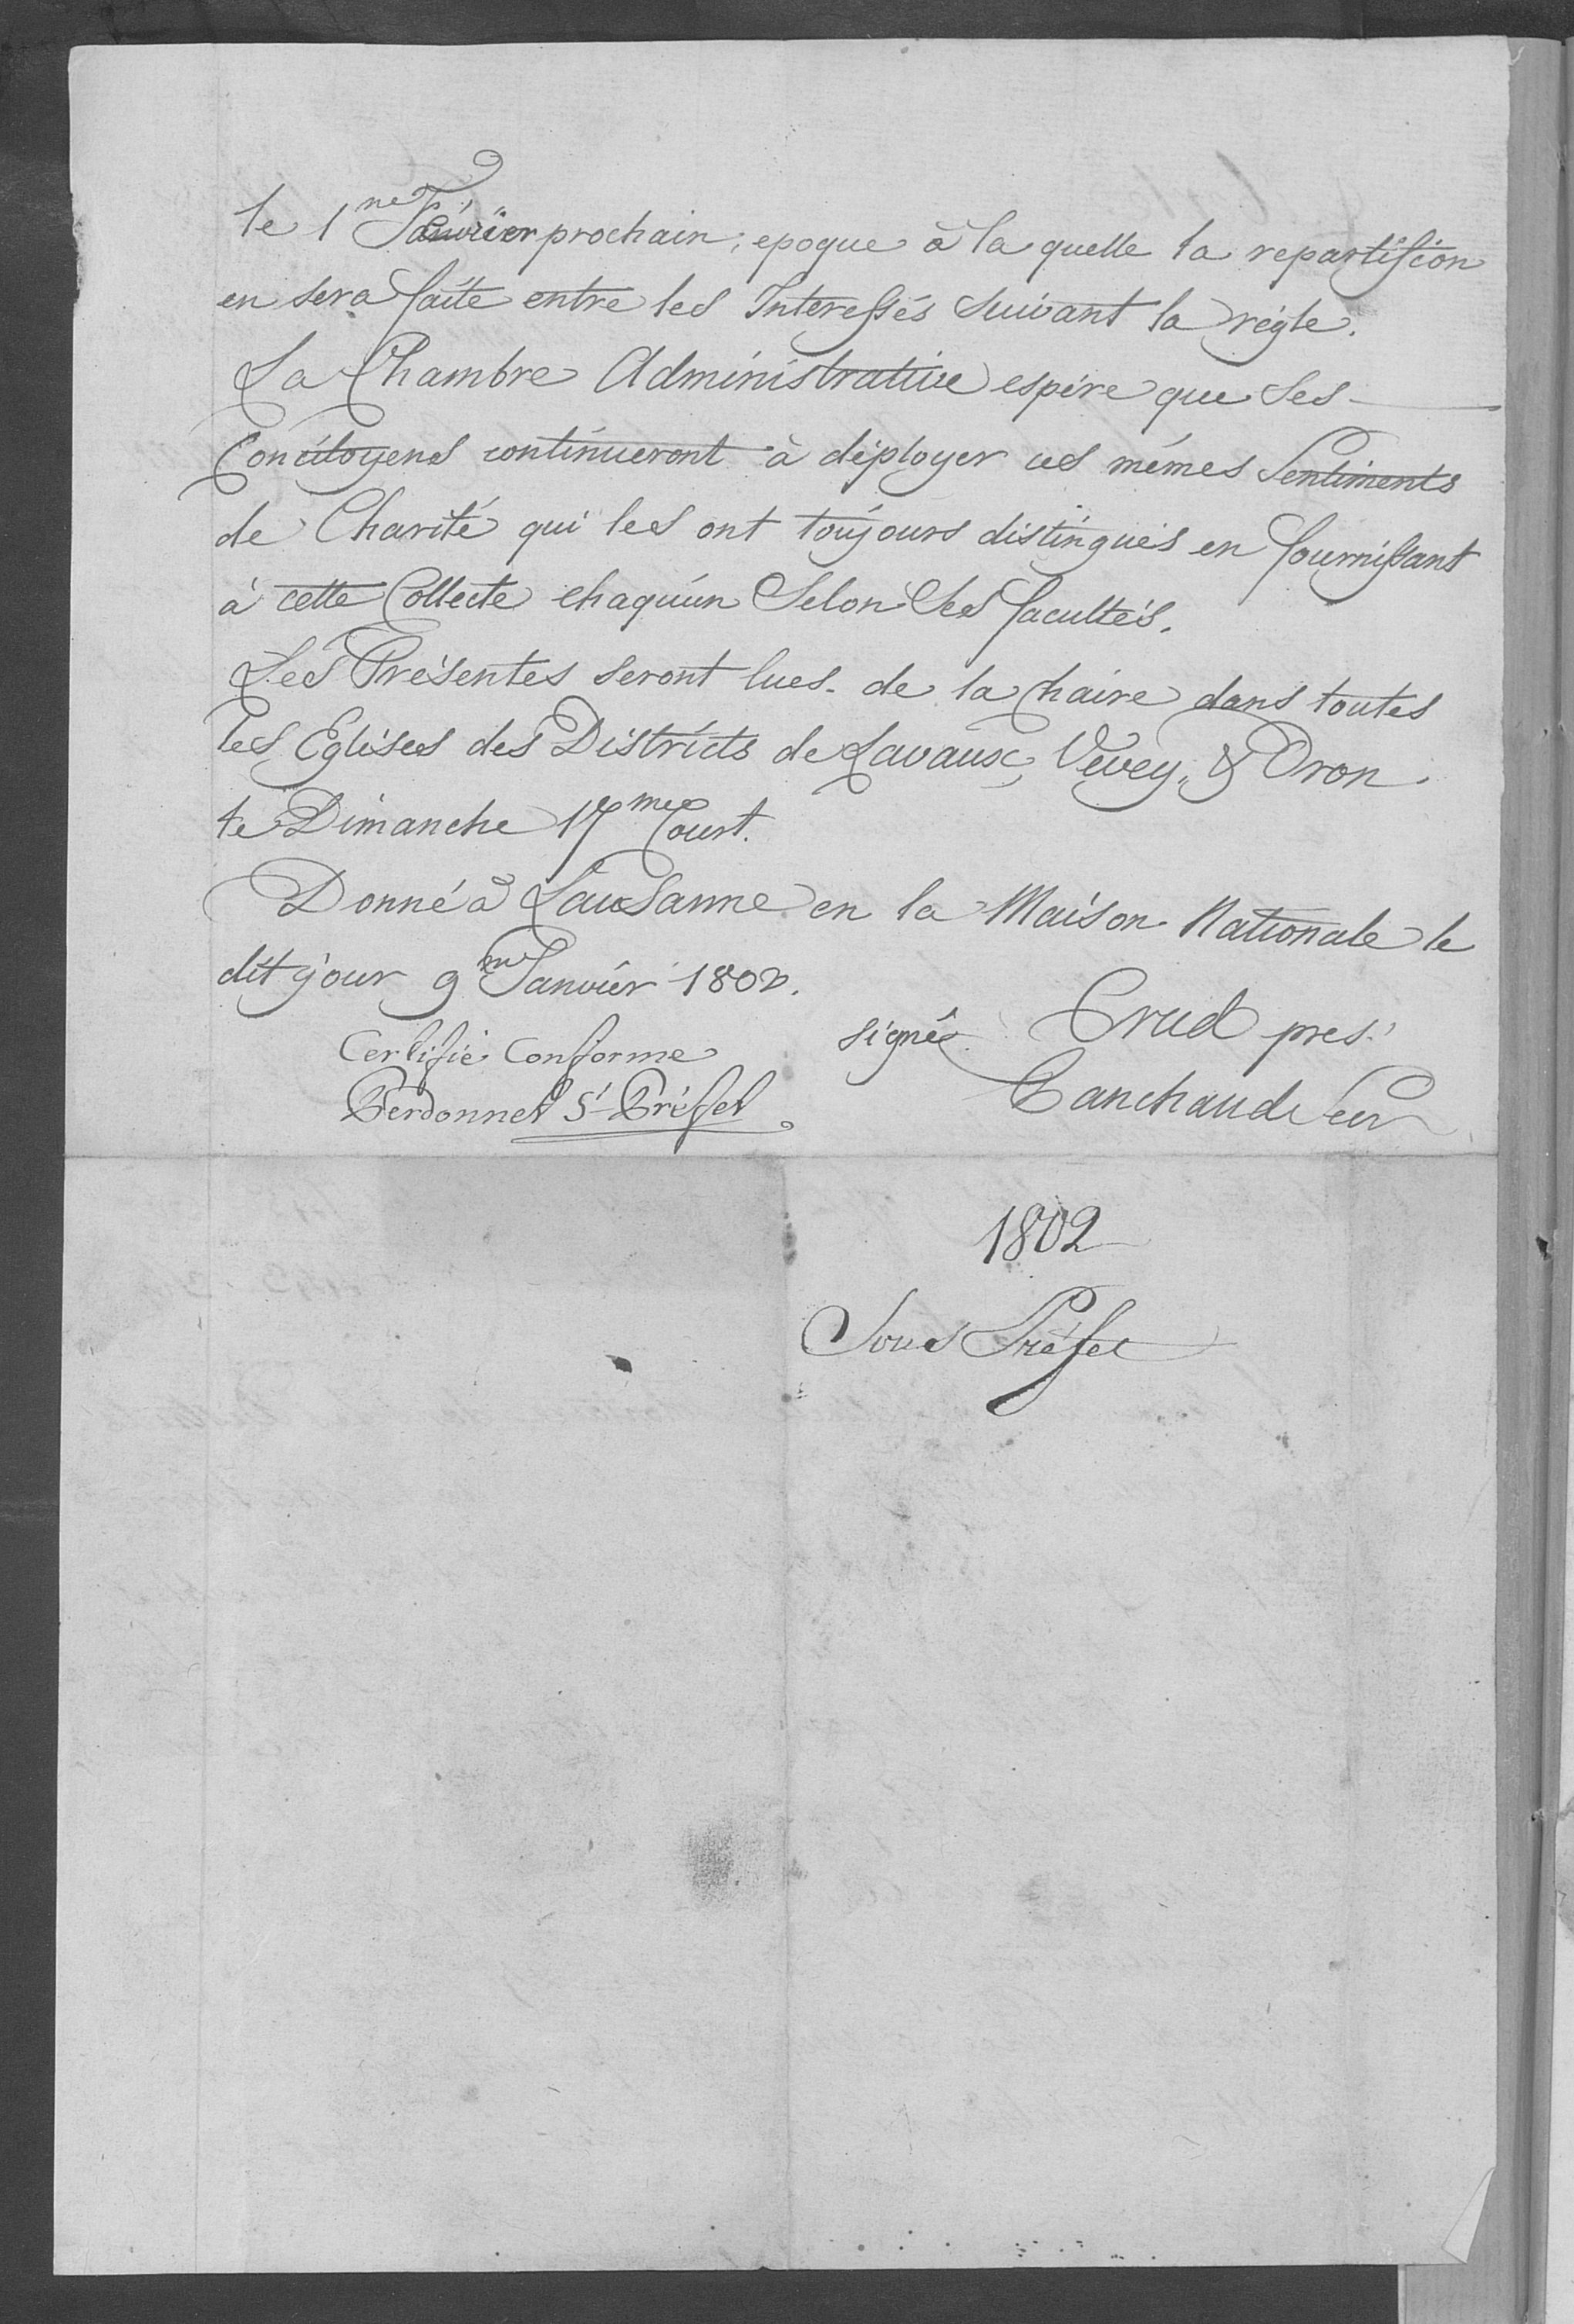 le 1.me Février prochain, epoque à la quelle la repartiſsion
en sera faite entre les Intereſsés Suivant la régle.
La Chambre Administrative espére que Ses
Concitoyens continueront à déployer ces mémes Sentiments
de Charité qui les ont toujours distingués en fourniſsant
à cette Collecte chaquün Selon Ses facultés.
Les Présentes seront lues de la Chaire dans toutes
les Eglises des Districts de Lavaux, Vevey, & Oron
le Dimanche 17me Court.
Donné à LauSanne en la Maison Nationale le
dit jour 9me Janvier 1802.
signés Crud pres.
Certifié Conforme
Panchaud Secr
Perdonnet St Préfet
1802
Sous Préfet